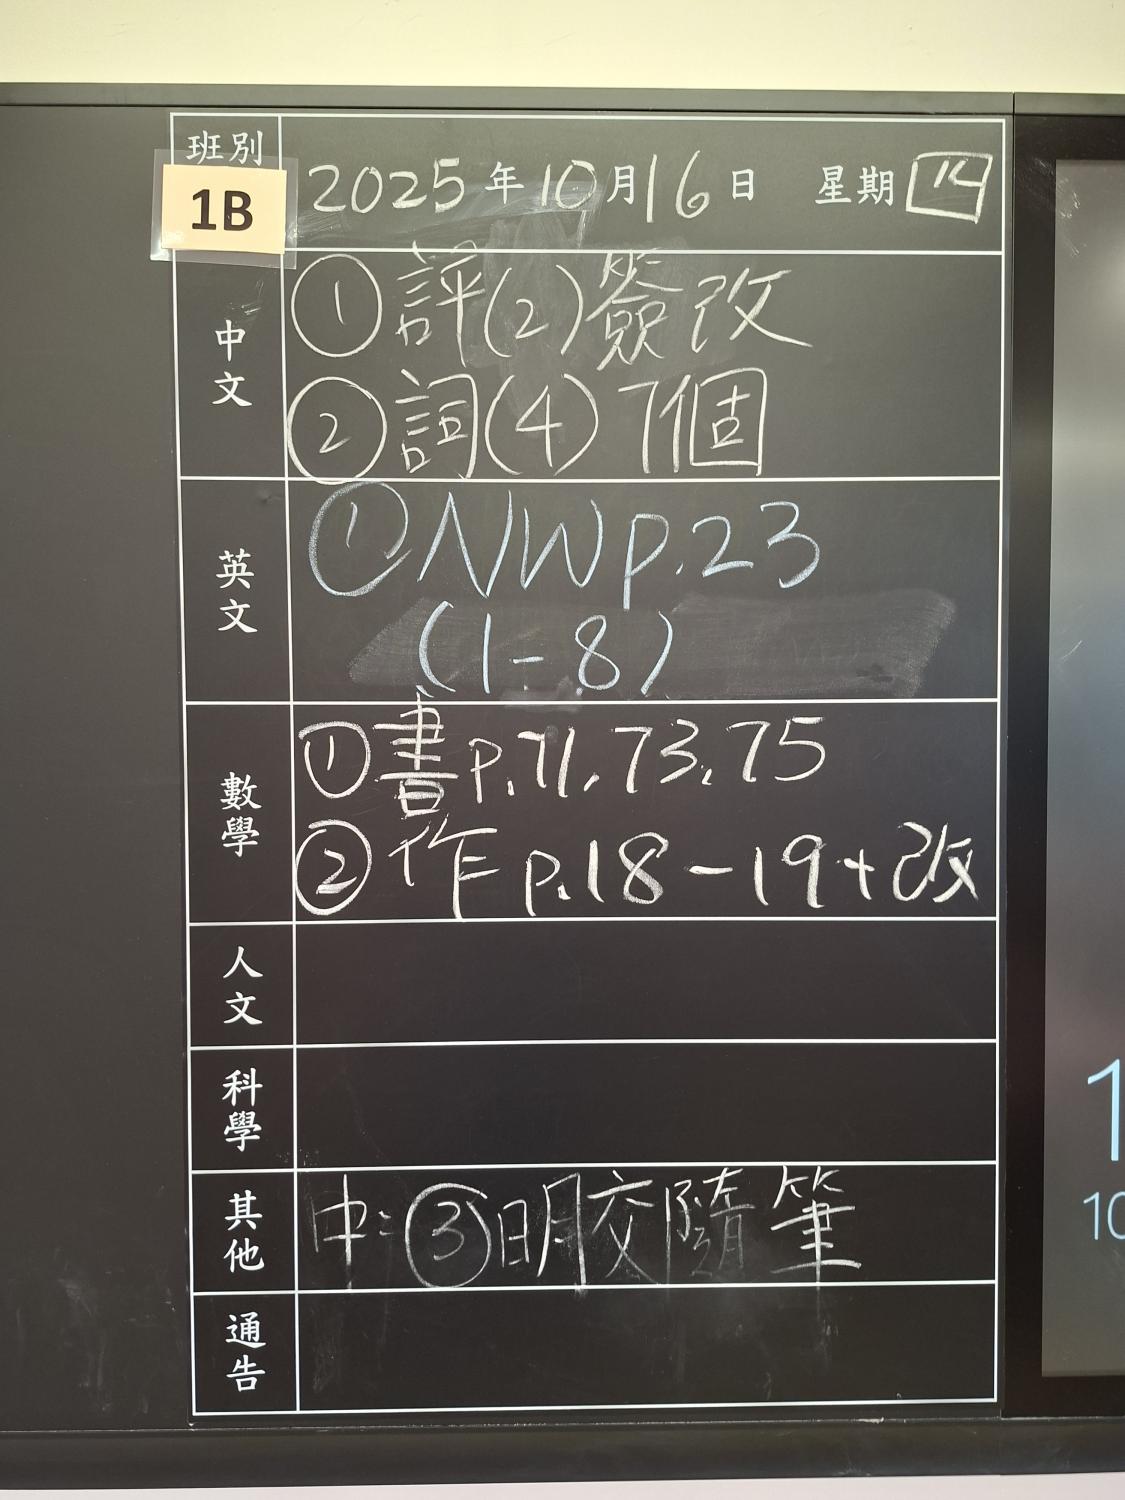 班別
1B
2025年10月16日 星期四
中文
①評(2)簽改
②詞(4)7個
英文
①NWp.23
(1-8)
數學
①書p.71,73,75
②作p.18-19+改
人文
科學
其他
中:③明交隨筆
通告
1
10